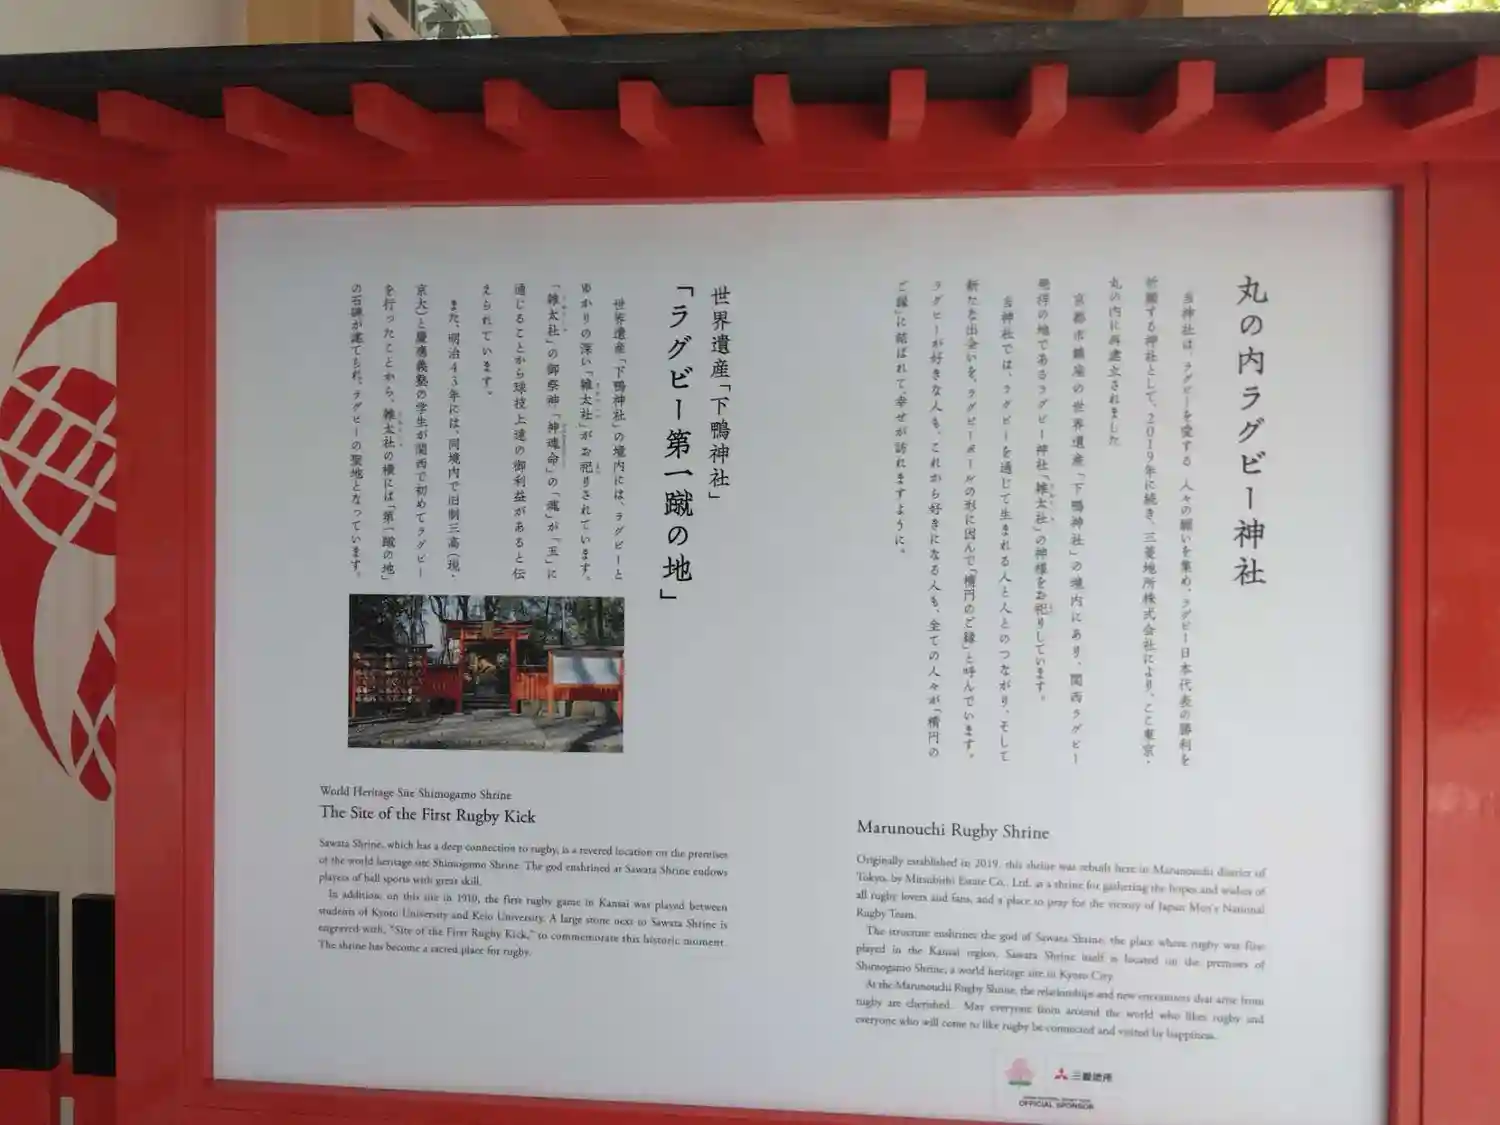 丸の内ラグビー神社
当神社は、ラグビーを愛する人々の願いを集め、ラグビー日本代表の勝利を
祈願する神社として、2019年に続き、三菱地所株式会社により、ここ東京・
丸の内に再建立されました
京都市鎮座の世界遺産「下鴨神社」の境内にあり、関西ラグビー
発祥の地であるラグビー神社「雑太社」の神様をお祀りしています。
当神社では、ラグビーを通じて生まれる人と人とのつながり、そして
新たな出会いを、ラグビーボールの形に因んで「楕円のご縁」と呼んでいます。
ラグビーが好きな人も、これから好きになる人も、全ての人々が「楕円の
ご縁」に結ばれて、幸せが訪れますように。
世界遺産「下鴨神社」
「ラグビー第一蹴の地」
世界遺産「下鴨神社」の境内には、ラグビーと
ゆかりの深い「雑太社」がお祀りされています。
「雑太社」の御祭神「神魂命」の「魂」が「玉」に
通じることから球技上達の御利益があると伝
えられています。
また、明治43年には、同境内で旧制三高（現・
京大）と慶應義塾の学生が関西で初めてラグビー
を行ったことから、雑太社の横には「第一蹴の地」
の石碑が建てられ、ラグビーの聖地となっています。
World Heritage Site Shimogamo Shrine
The Site of the First Rugby Kick
Sawata Shrine, which has a deep connection to rugby, is a revered location on the premises
of the world heritage site Shimogamo Shrine. The god enshrined at Sawata Shrine endows
players of ball sports with great skill.
In addition, on this site in 1910, the first rugby game in Kansai was played between
students of Kyoto University and Keio University. A large stone next to Sawata Shrine is
engraved with, "Site of the First Rugby Kick," to commemorate this historic moment.
The shrine has become a sacred place for rugby.
Marunouchi Rugby Shrine
Originally established in 2019, this shrine was rebuilt here in Marunouchi district of
Tokyo, by Mitsubishi Estate Co., Ltd. as a shrine for gathering the hopes and wishes of
all rugby lovers and fans, and a place to pray for the victory of Japan Men's National
Rugby Team.
The structure enshrines the god of Sawata Shrine, the place where rugby was first
played in the Kansai region. Sawata Shrine itself is located on the premises of
Shimogamo Shrine, a world heritage site in Kyoto City.
At the Marunouchi Rugby Shrine, the relationships and new encounters that arise from
rugby are cherished. May everyone from around the world who likes rugby and
everyone who will come to like rugby be connected and visited by happiness.
三菱地所
OFFICIAL SPONSOR